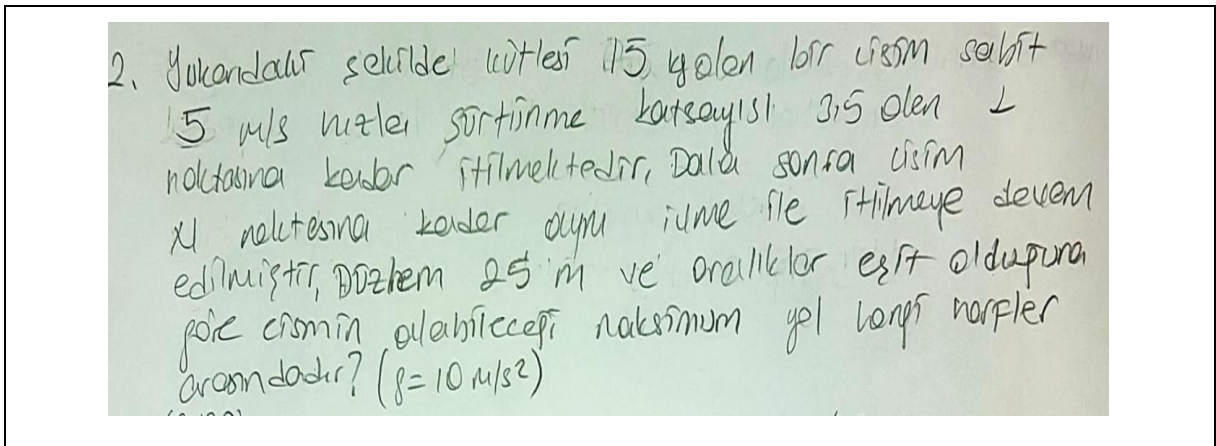 2. Yukarıdaki şekilde kütlesi 15 kg olan bir cisim sabit
5 m/s hızla sürtünme katsayısı 3,5 olan L
noktasına kadar itilmektedir, Daha sonra cisim
M noktasına kadar aynı ivme ile itilmeye devam
edilmiştir, Düzlem 25 m ve aralıklar eşit olduğuna
göre cismin alabileceği maksimum yol hangi harfler
arasındadır? (g=10 m/s²)